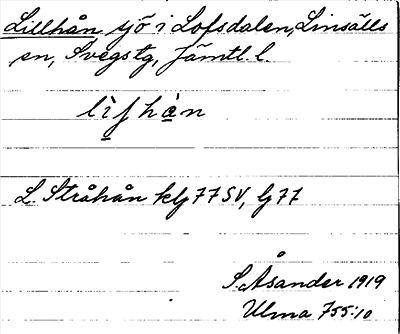 Lillhån sjö i Lofsdalen, Linsälls
sn, Svegs tg, Jämtl. l.
lìfhàn
L. Stråhån klg 77 SV, lg 77
S. Åsander 1919
Ulma 755:10